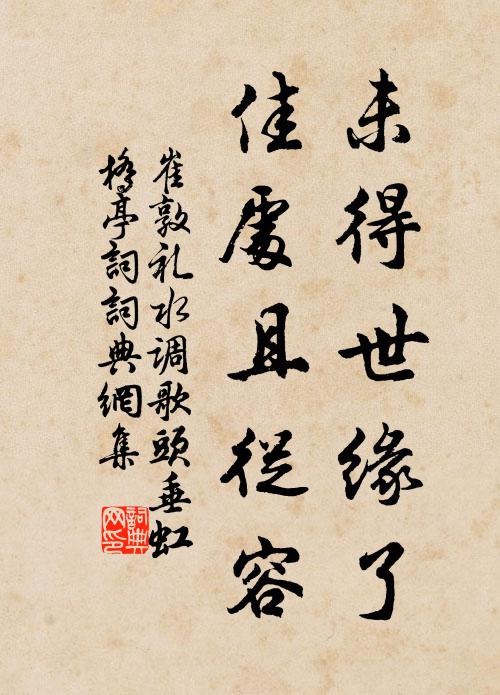 未得世缘了
佳處且從容
崔敦礼水调歌頭垂虹
橋亭詞詞典網集
詞典网印